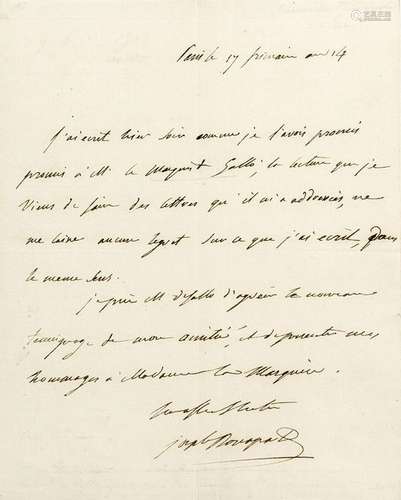 Paris le 17 frimaire an 14
j'ai ecrit hier soir comme je l'avois promis
promis à M. le Marquis de Gallo, la lecture que je
viens de faire des lettres qu'il m'a addressées, ne
me laisse aucun regret sur ce que j'ai ecrit, dans
le meme sens.
je prie M. de Gallo d'agréer le nouveau
temoignage de mon amitié, et de presenter mes
hommages à Madame la Marquise.
joseph Bonaparte